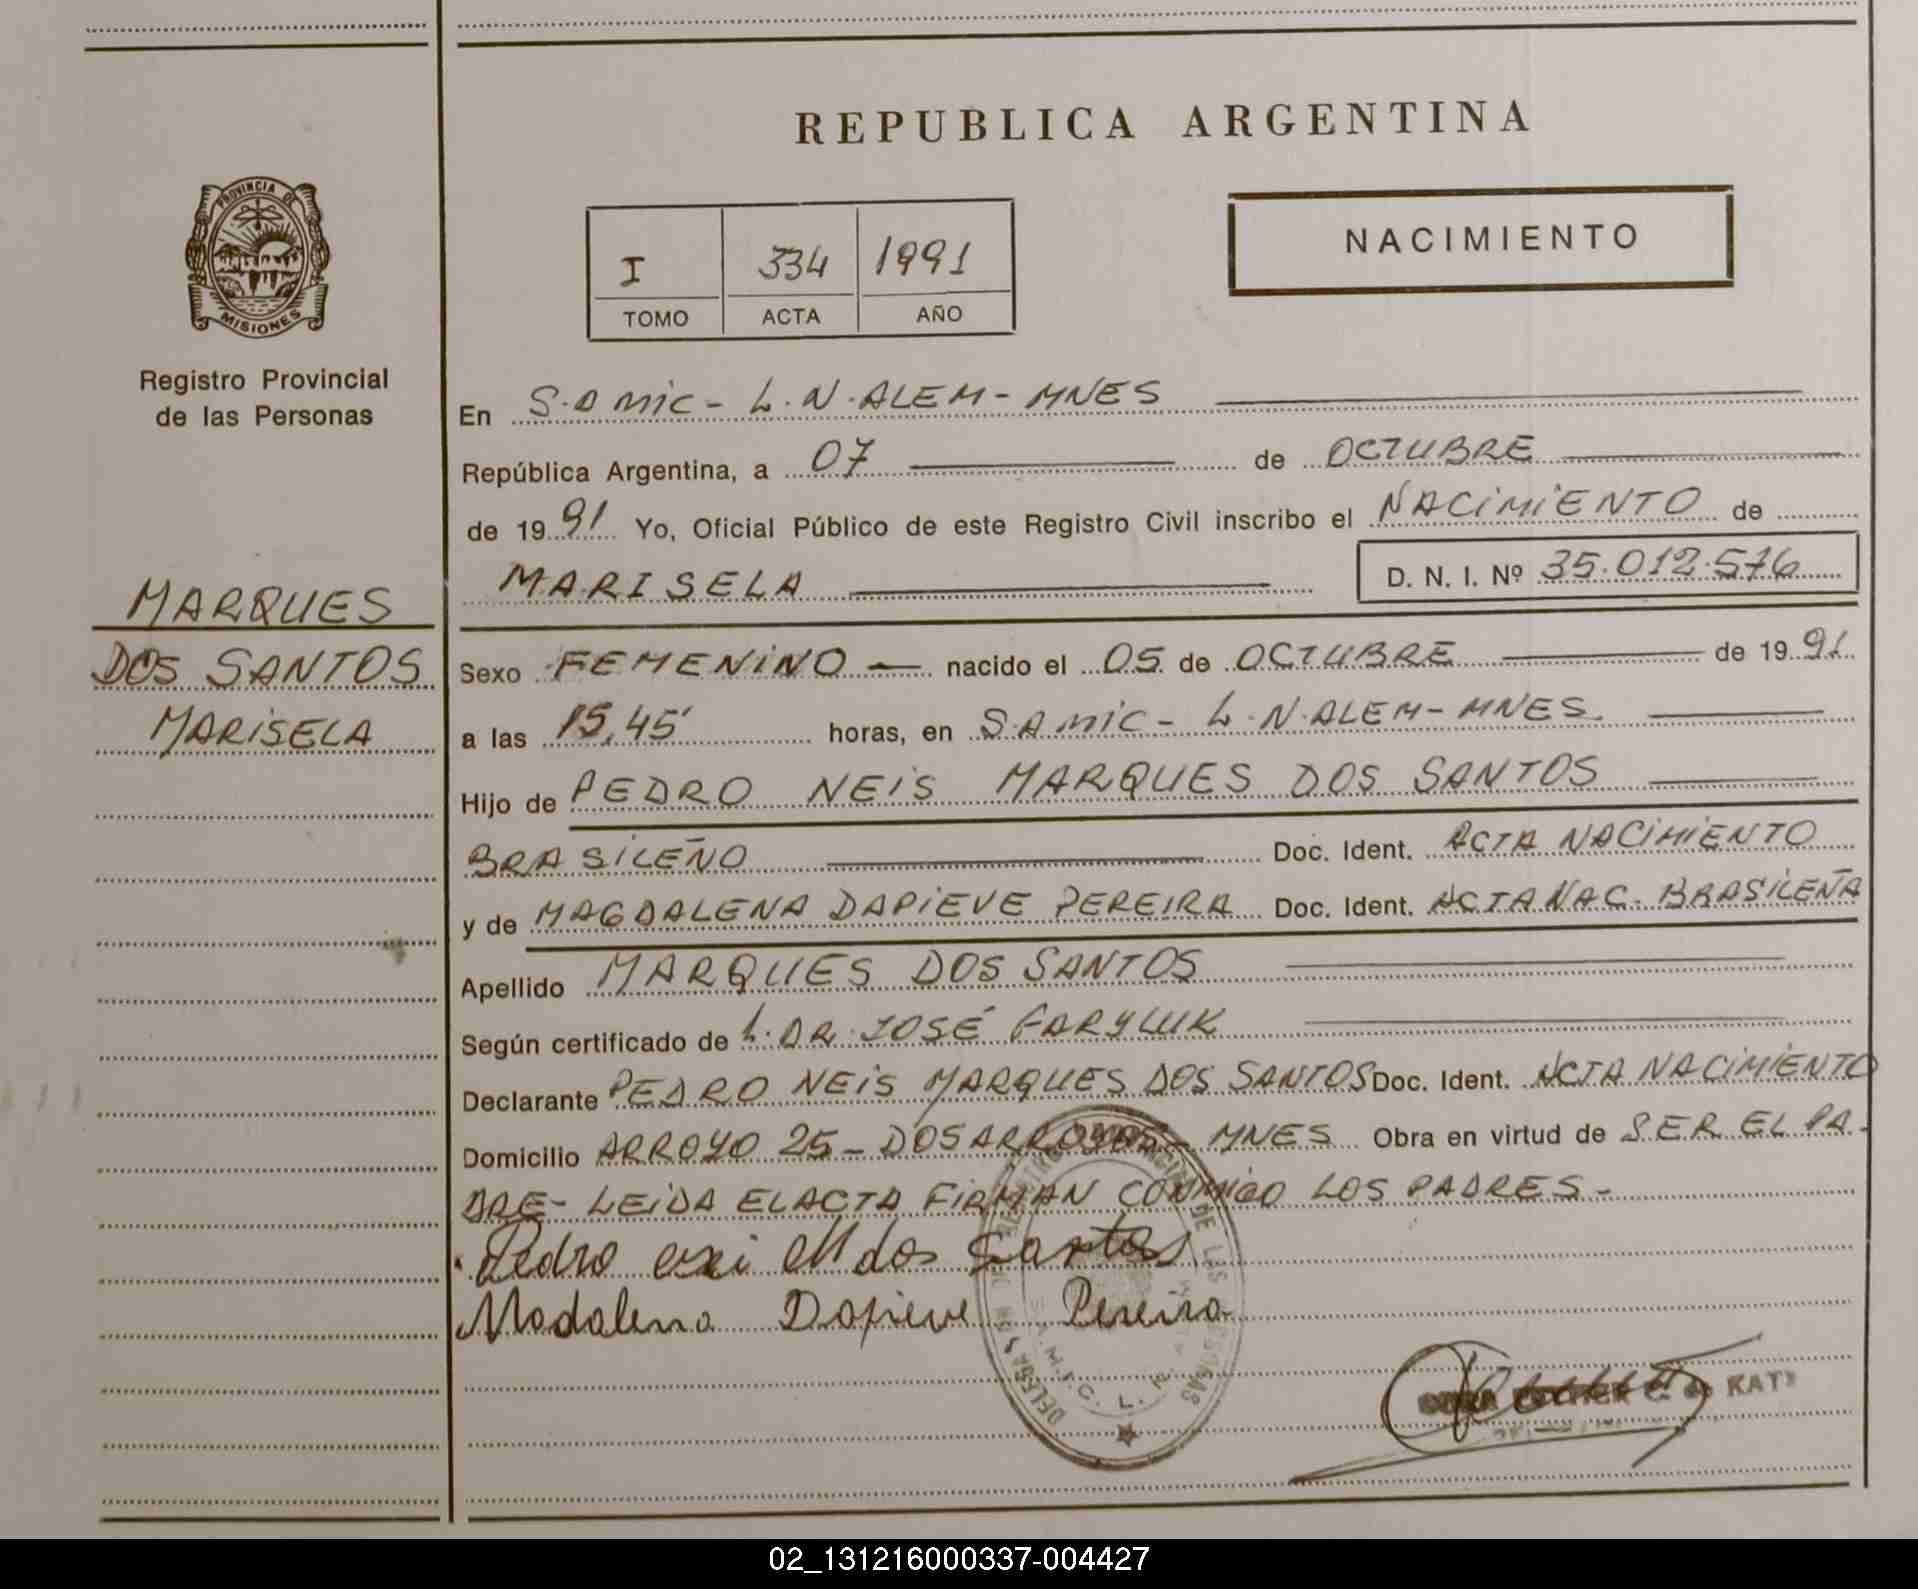 REPUBLICA ARGENTINA
PROVINCIA DE
MISIONES
Registro Provincial
de las Personas
I 334 1991
TOMO ACTA AÑO
NACIMIENTO
En S.A MIC - L.N.ALEM - MNES
República Argentina, a 07 de OCTUBRE
de 1991 Yo, Oficial Público de este Registro Civil inscribo el NACIMIENTO de
MARISELA D. N. I. Nº 35.012.576
MARQUES
DOS SANTOS
MARISELA
Sexo FEMENINO — nacido el 05 de OCTUBRE de 1991
a las 15,45' horas, en S.A MIC - L.N.ALEM - MNES.
Hijo de PEDRO NEIS MARQUES DOS SANTOS
BRASILEÑO Doc. Ident. ACTA NACIMIENTO
y de MAGDALENA DAPIEVE PEREIRA Doc. Ident. ACTA NAC. BRASILEÑA
Apellido MARQUES DOS SANTOS
Según certificado de L. DR. JOSÉ GARYLUK
Declarante PEDRO NEIS MARQUES DOS SANTOS Doc. Ident. ACTA NACIMIENTO
Domicilio ARROYO 25 - DOS ARROYOS - MNES Obra en virtud de SER EL PA-
DRE - LEIDA EL ACTA FIRMAN CONMIGO LOS PADRES -
Pedro M dos Santos
Madalena Dapieve Pereira
DE LAS
S.A.M.I.C. L. N.
de KATZ
02_131216000337-004427